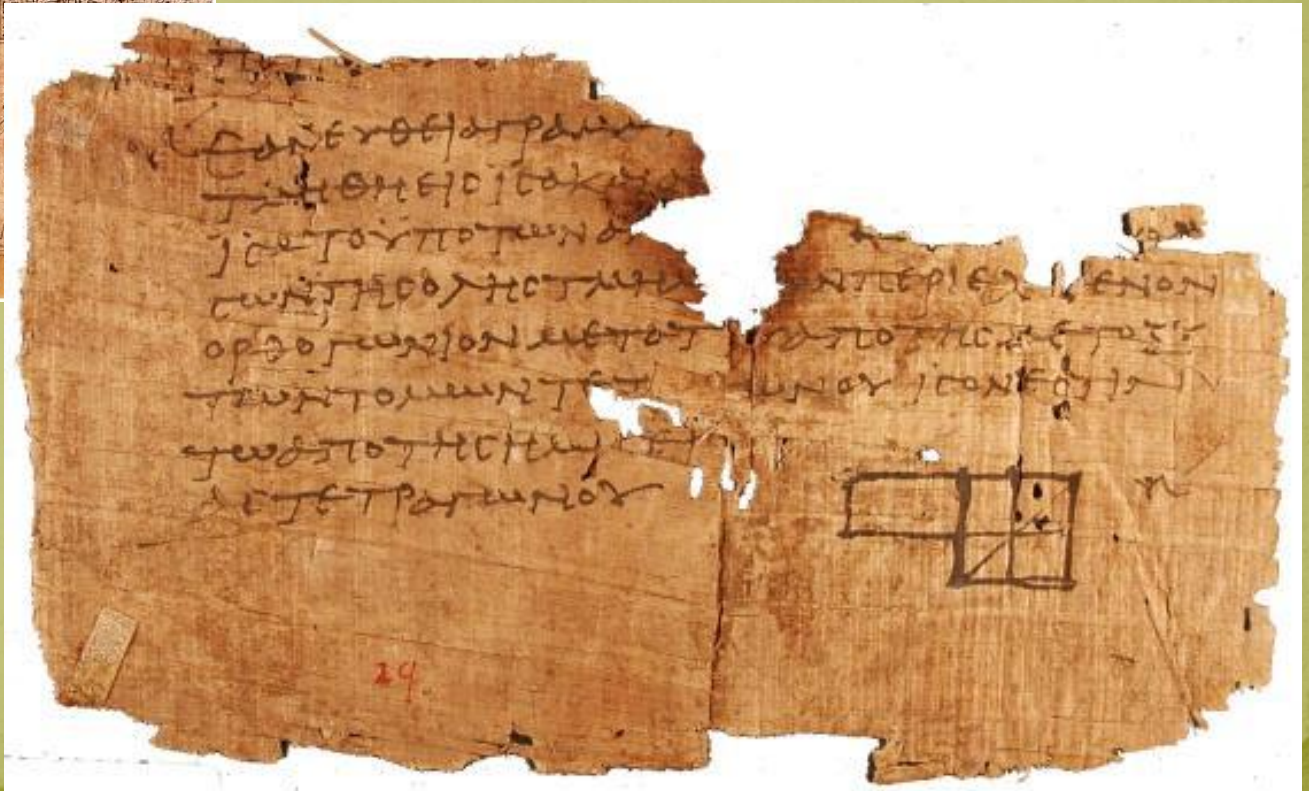 ΕΑΝ ΕΥΘΕΙΑ ΓΡΑΜΜ
ΤΜΗΘΗ ΕΙϹ ΙϹΑ ΚΑΙ
ΙϹΑ ΤΟ ΥΠΟ ΤΩΝ ΑΝ
ϹΩΝ ΤΗϹ ΟΛΗϹ ΤΜΗΜ Ν ΠΕΡΙΕΧ ΜΕΝΟΝ
ΟΡΘΟΓΩΝΙΟΝ ΜΕΤΑ Τ ΑΠΟ ΤΗϹ ΜΕΤΟΞΥ
ΤΩΝ ΤΟΜΩΝ ΤΕΤ ΩΝΟΥ ΙϹΟΝ ΕϹΤΙΝ
ΤΩ ΑΠΟ ΤΗϹ ΗΜΙ
ΑϹ ΤΕΤΡΑΓΩΝΟΥ
29